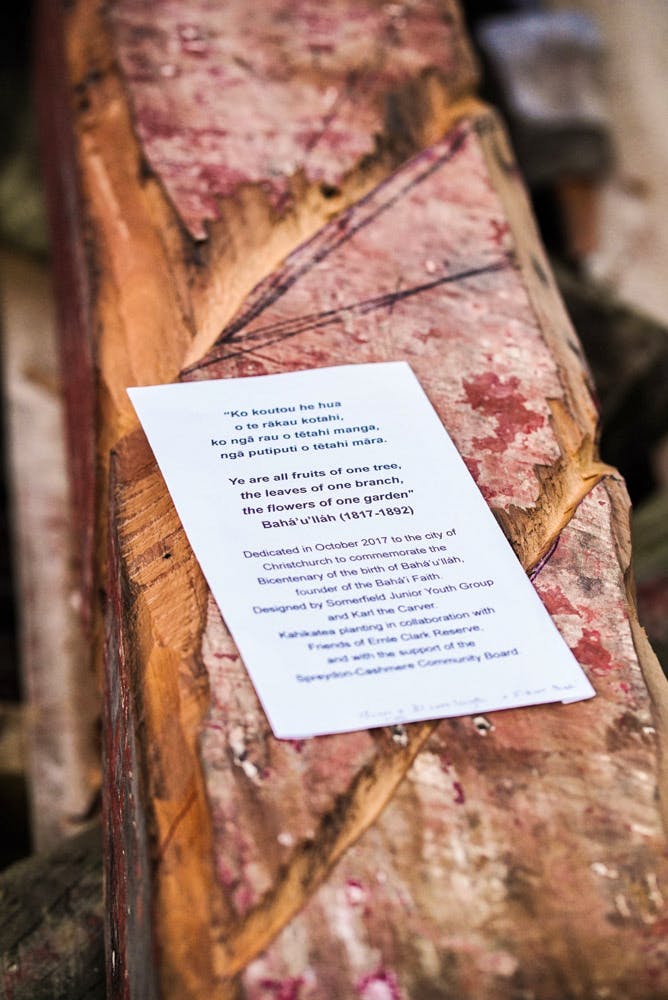 “Ko koutou he hua
o te rākau kotahi,
ko ngā rau o tētahi manga,
ngā putiputi o tētahi māra.
Ye are all fruits of one tree,
the leaves of one branch,
the flowers of one garden”
Bahá’u’lláh (1817-1892)
Dedicated in October 2017 to the city of
Christchurch to commemorate the
Bicentenary of the birth of Bahá’u’lláh,
founder of the Bahá’í Faith.
Designed by Somerfield Junior Youth Group
and Karl the Carver.
Kahikatea planting in collaboration with
Friends of Ernle Clark Reserve,
and with the support of the
Spreydon-Cashmere Community Board.